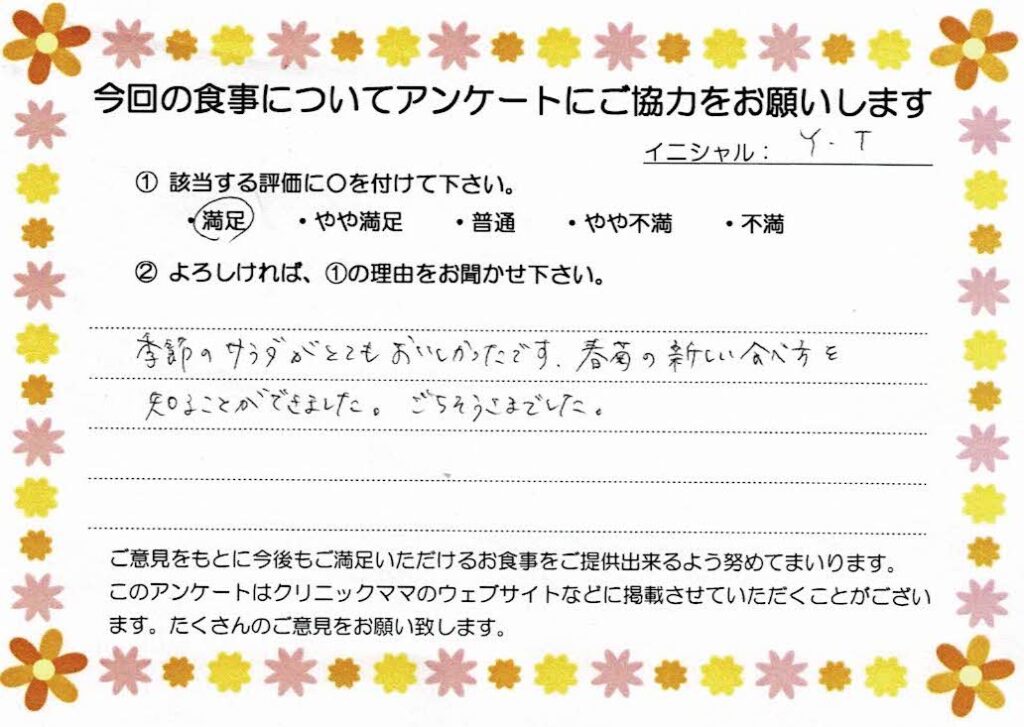 今回の食事についてアンケートにご協力をお願いします
イニシャル： Y・T
① 該当する評価に〇を付けて下さい。
・満足 ・やや満足 ・普通 ・やや不満 ・不満
② よろしければ、①の理由をお聞かせ下さい。
季節のサラダがとてもおいしかったです、春菊の新しい食べ方を
知ることができました。ごちそうさまでした。
ご意見をもとに今後もご満足いただけるお食事をご提供出来るよう努めてまいります。
このアンケートはクリニックママのウェブサイトなどに掲載させていただくことがござい
ます。たくさんのご意見をお願い致します。